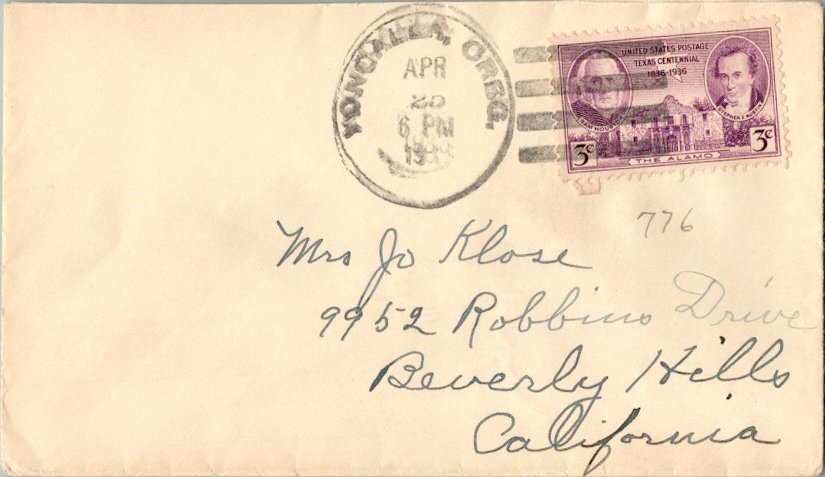 YONCALLA, OREG.
APR
25
6 PM
UNITED STATES POSTAGE
TEXAS CENTENNIAL
1836-1936
SAM HOUSTON
STEPHEN F. AUSTIN
3¢
3¢
THE ALAMO
776
Mrs Jo Klose
9952 Robbins Drive
Beverly Hills
California